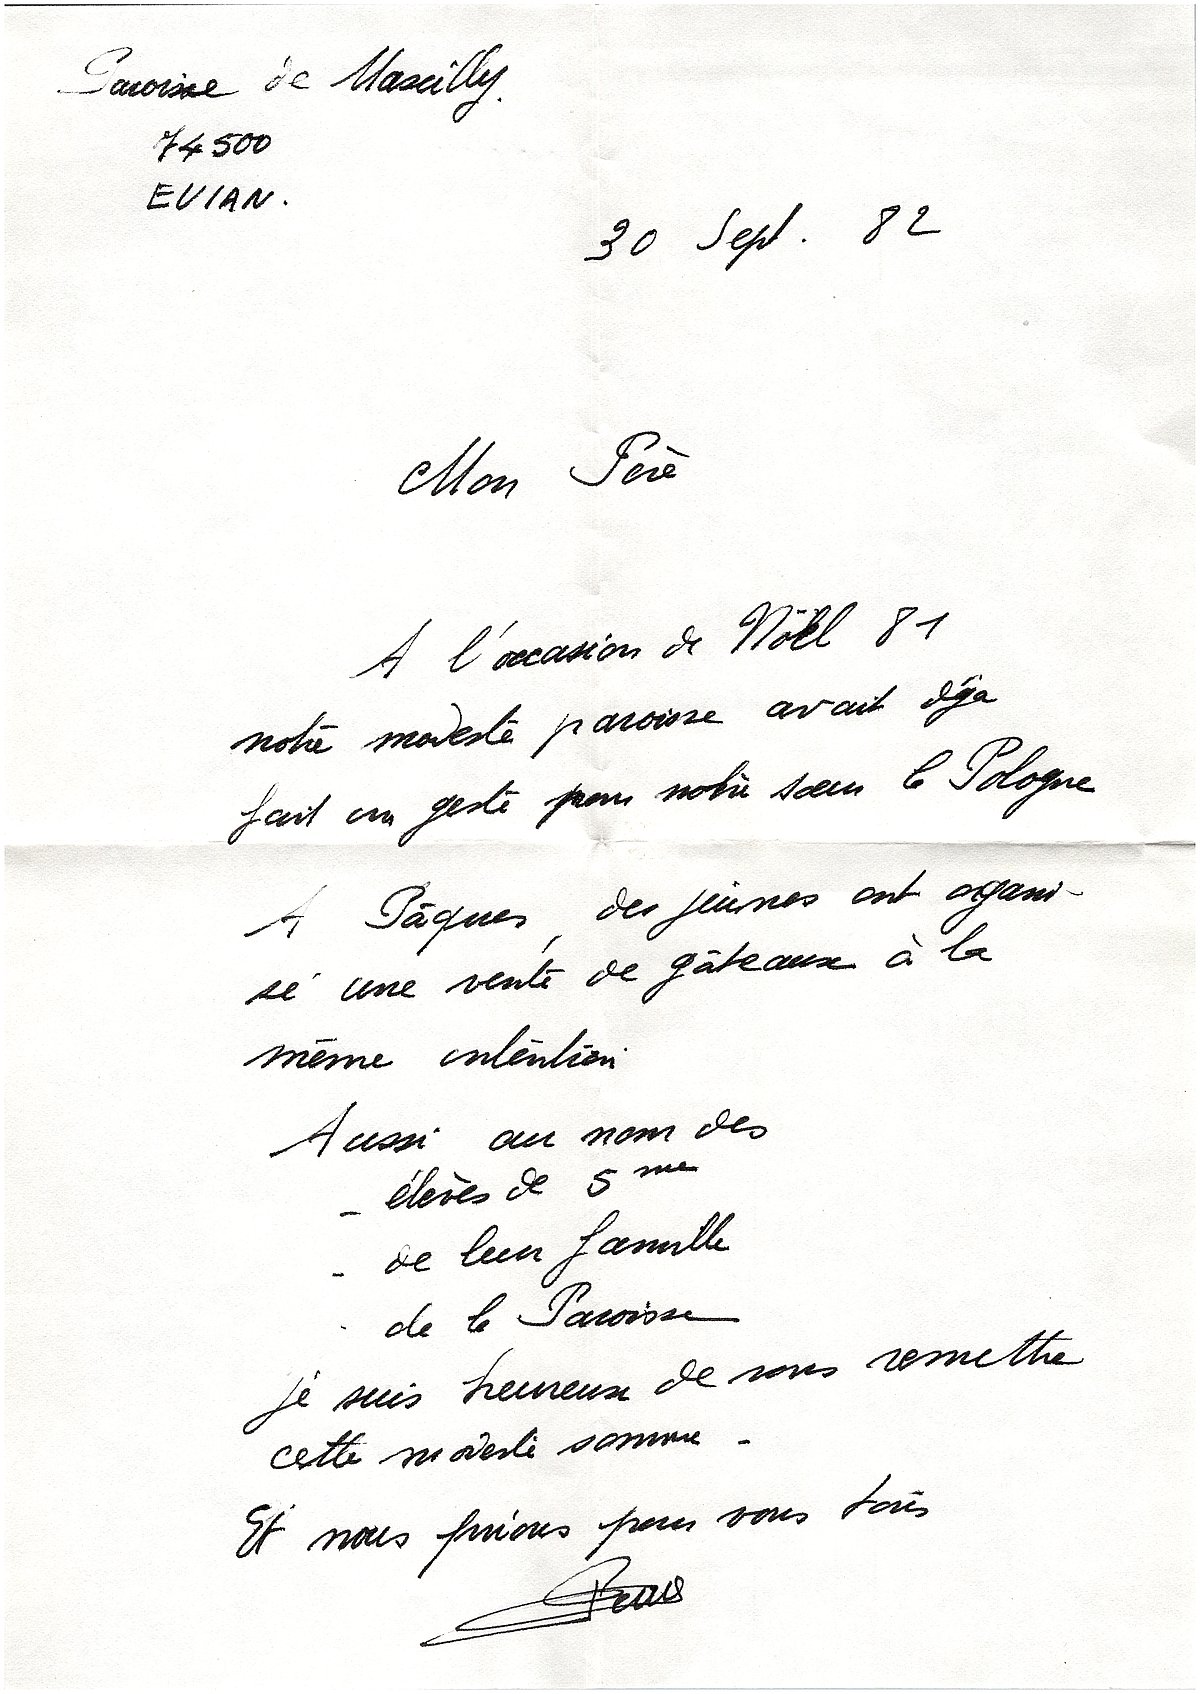 Paroisse de Maxilly.
74500
EVIAN.
30 Sept. 82
Mon Père
A l'occasion de Nöel 81
notre modeste paroisse avait déja
fait un geste pour notre sœur la Pologne
A Pâques, des jeunes ont organi-
sé une vente de gâteaux à la
même intention
Aussi au nom des
- élèves de 5 me
- de leur famille
- de la Paroisse
je suis heureux de vous remettre
cette modeste somme -
Et nous prions pour vous tous